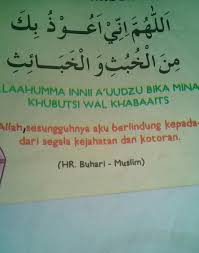 اَللّٰهُمَّ اِنِّيْ اَعُوْذُ بِكَ
مِنَ الْخُبُثِ وَ الْخَبَائِثِ
LAAHUMMA INNII A'UUDZU BIKA MINA
KHUBUTSI WAL KHABAAITS
Allah,sesungguhnya aku berlindung kepada-
dari segala kejahatan dan kotoran.
(HR. Buhari - Muslim)